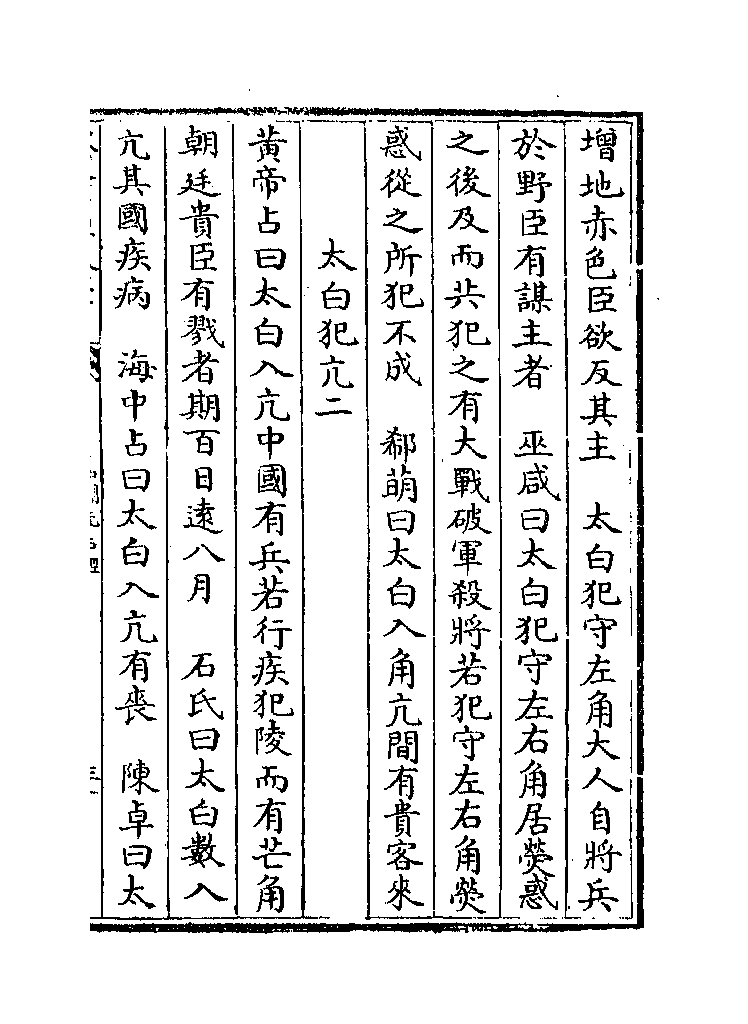 增地赤色臣欲反其主　太白犯守左角大人自將兵
於野臣有謀主者　巫咸曰太白犯守左右角居熒惑
之後及而共犯之有大戰破軍殺將若犯守左右角熒
惑從之所犯不成　郗萌曰太白入角亢間有貴客來
太白犯亢二
黃帝占曰太白入亢中國有兵若行疾犯陵而有芒角
朝廷貴臣有戮者期百日遠八月　石氏曰太白數入
亢其國疾病　海中占曰太白入亢有喪　陳卓曰太